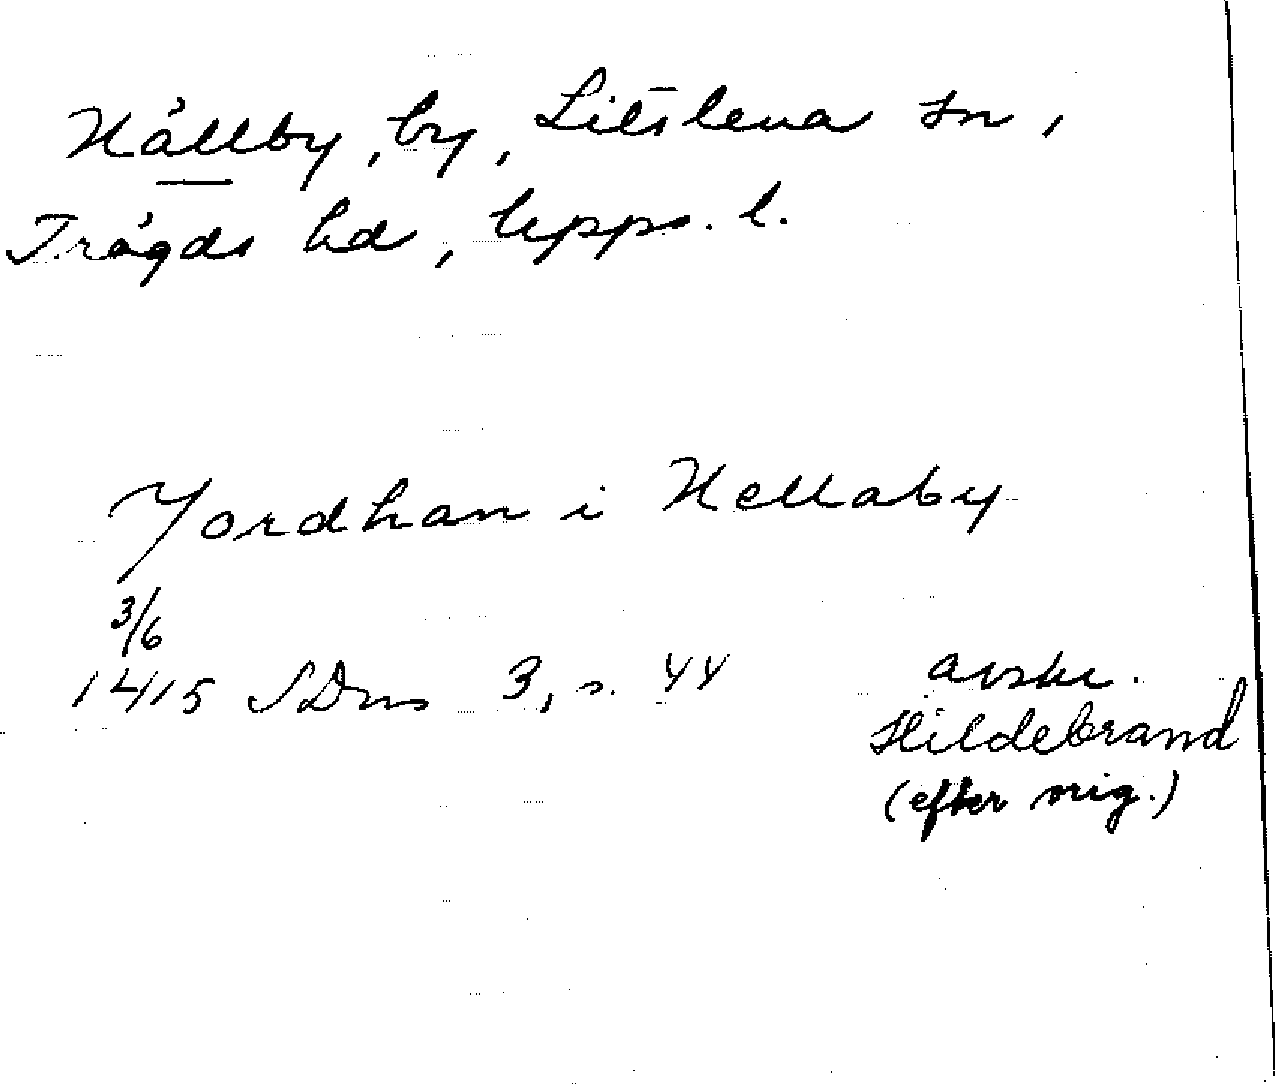 Hållby, by, Litslena sn,
Trögds hd, Upps. l.
Jordhan i Hellaby
3/6
1415 SDns 3, s. 44 avskr.
Hildebrand
(efter orig.)